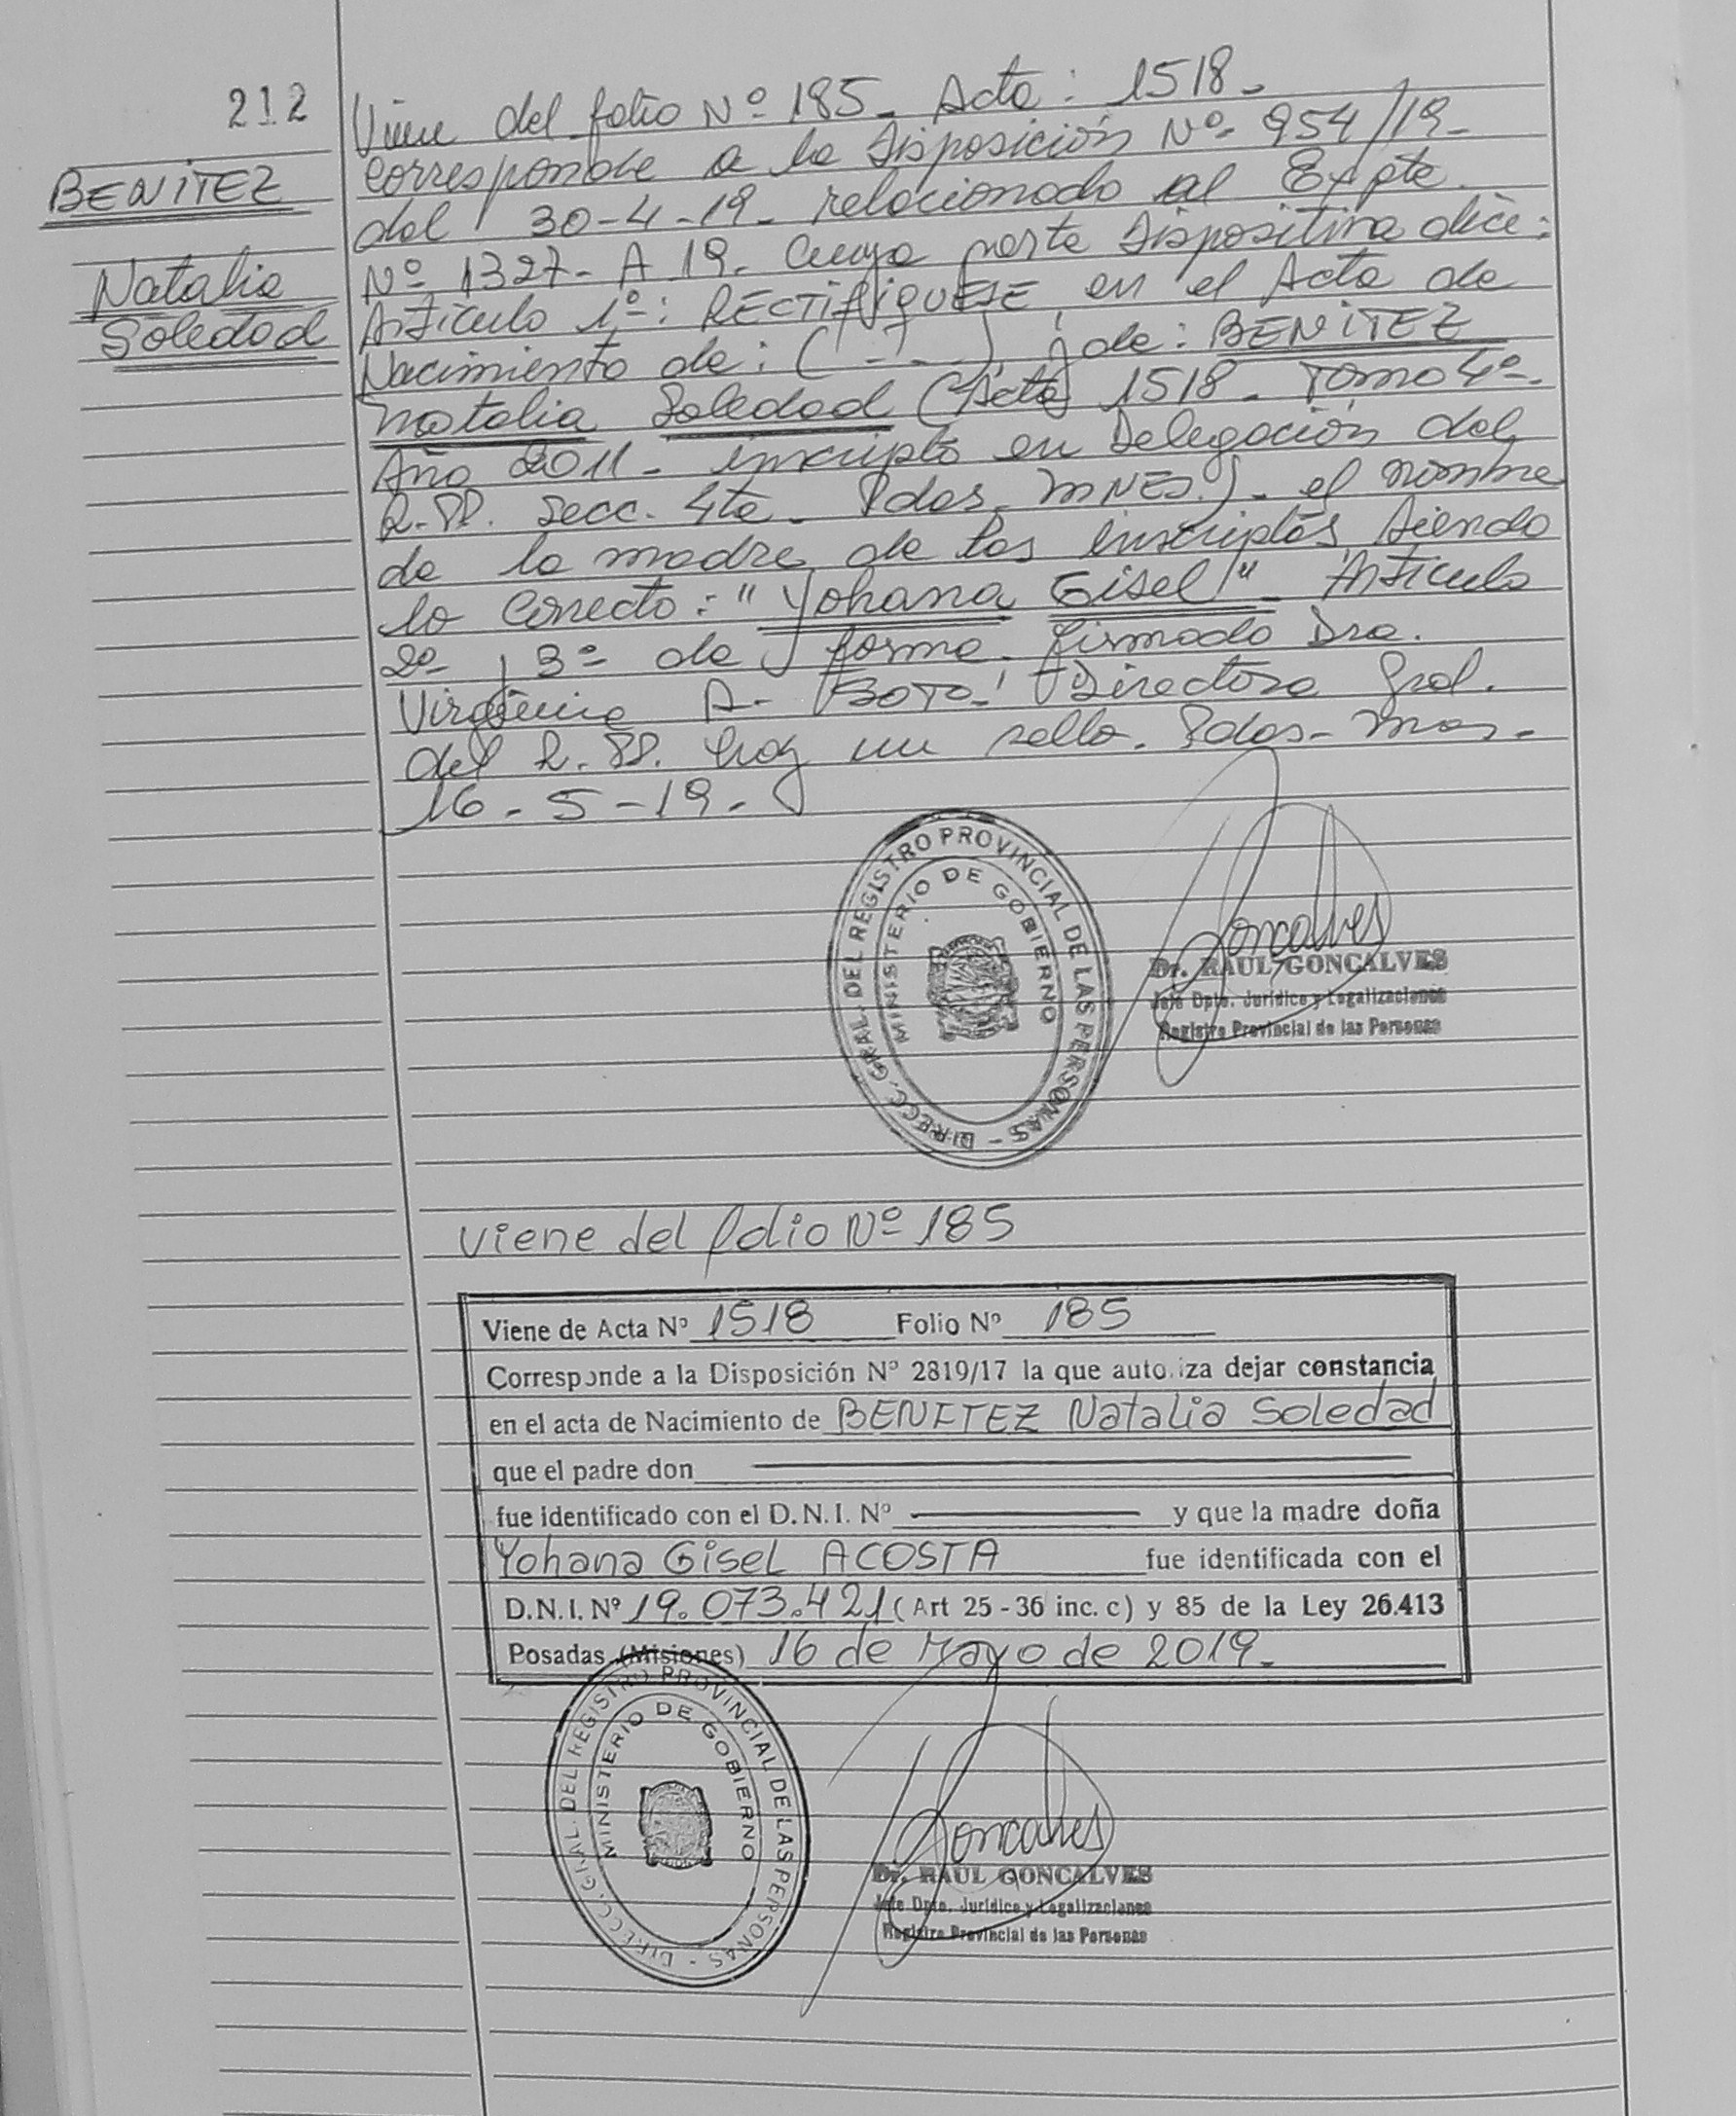 212
BENITEZ
Natalia
Soledad
Viene del folio Nº 185 - Acta: 1518 -
corresponde a la Disposición Nº 954/19 -
del 30-4-19 - relacionado al Expte.
Nº 1327 - A 19. Cuya parte dispositiva dice:
Artículo 1º: RECTIFIQUESE en el Acta de
Nacimiento de: (- - -) y de: BENITEZ
Natalia Soledad (Acta 1518 - Tomo 4º -
Año 2011 - inscripta en Delegación del
R.PP. Secc. 4ta - Pdas - MNES.) - el nombre
de la madre de los inscriptos siendo
lo correcto: "Yohana Gisel" - Artículo
2º y 3º de forma - firmado Dra.
Virginia A. Directora Gral.
del R.PP. hay un sello. Pdas - Mnes -
16 - 5 - 19 -
DIRECC. GRAL. DEL REGISTRO PROVINCIAL DE LAS PERSONAS -
MINISTERIO DE GOBIERNO
Goncalves
Dr. RAUL GONCALVES
Jefe Dpto. Jurídico y Legalizaciones
Registro Provincial de las Personas
Viene del folio Nº 185
Viene de Acta Nº 1518 Folio Nº 185
Corresponde a la Disposición Nº 2819/17 la que autoriza dejar constancia
en el acta de Nacimiento de BENITEZ Natalia Soledad
que el padre don
fue identificado con el D.N.I. Nº y que la madre doña
Yohana Gisel ACOSTA fue identificada con el
D.N.I. Nº 19.073.421 (Art 25 - 36 inc. c) y 85 de la Ley 26.413
Posadas (Misiones) 16 de Mayo de 2019 -
DIRECC. GRAL. DEL REGISTRO PROVINCIAL DE LAS PERSONAS -
MINISTERIO DE GOBIERNO
Goncalves
Dr. RAUL GONCALVES
Jefe Dpto. Jurídico y Legalizaciones
Registro Provincial de las Personas